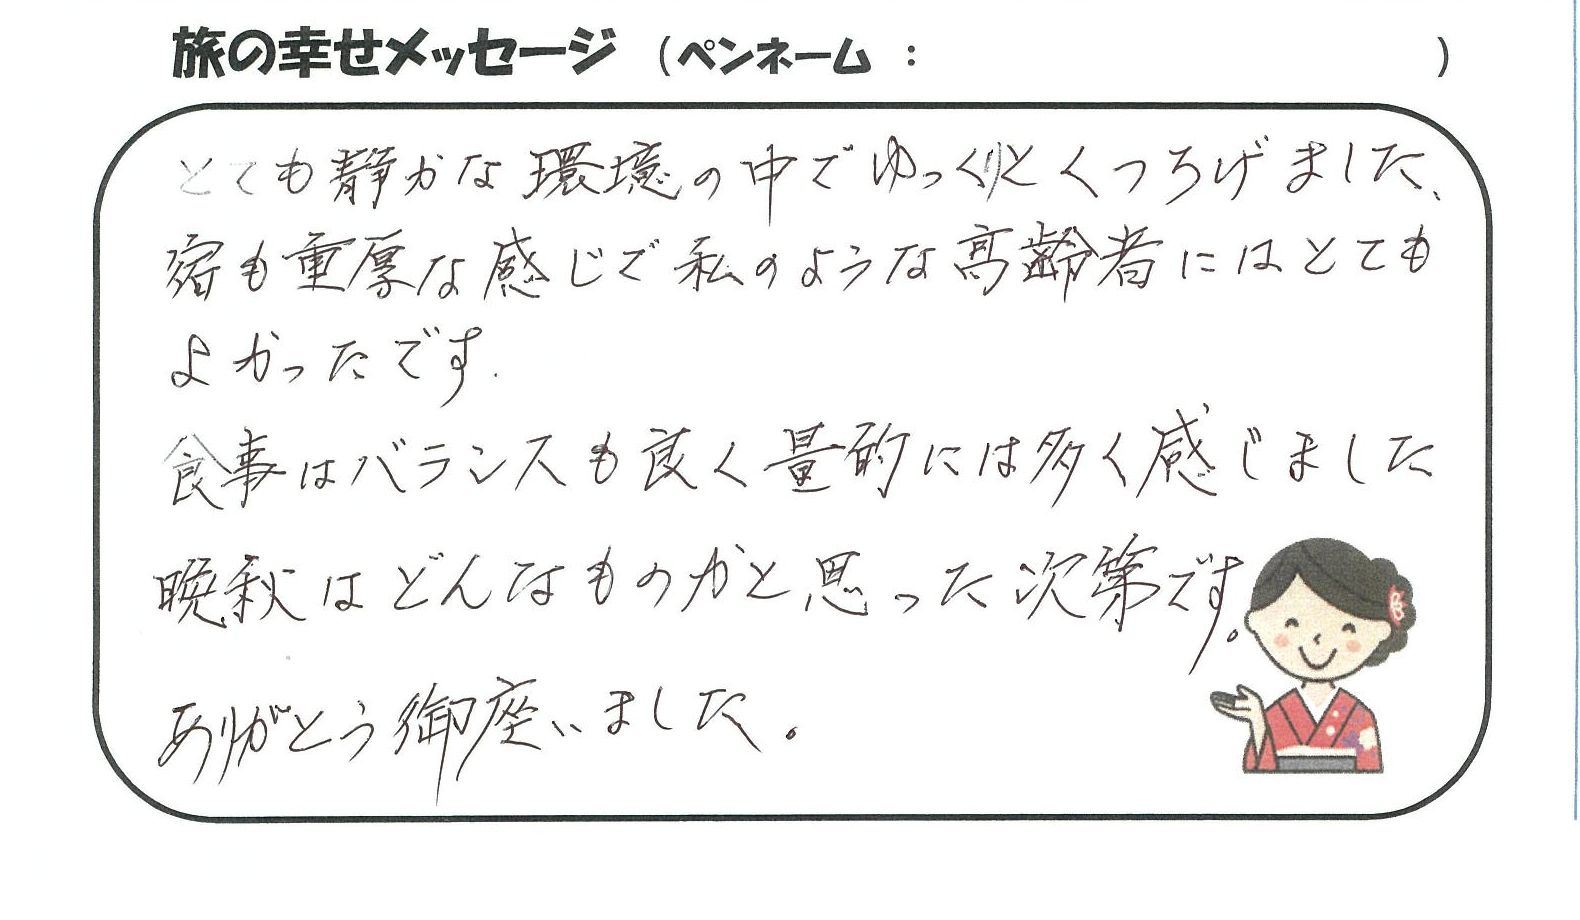 旅の幸せメッセージ （ペンネーム ： ）
とても静かな環境の中でゆっくりとくつろげました、
宿も重厚な感じで私のような高齢者にはとても
よかったです.
食事はバランスも良く量的には多く感じました
晩秋はどんなものかと思った次第です。
ありがとう御座いました。